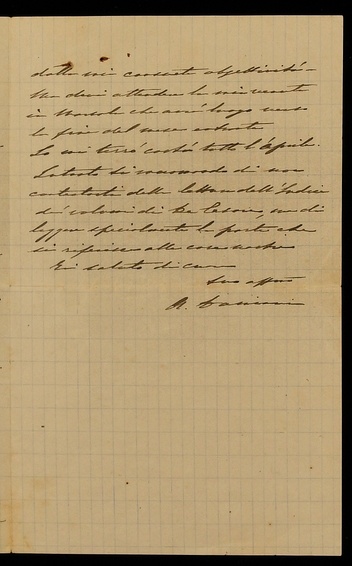 dalla mia consueta obiettività –
Ma devi attendere la mia venuta
in        che avrà luogo verso
la fine del mese entrante
Io mi terrò costà tutto l'Aprile.
Intanto ti raccomando di non
contentarti della lettura dell'Indice
dei volumi di De Cesare, ma di
leggere specialmente la parte che
si riferisce alle cose nostre
Ti saluto di cuore
Suo affmo
R.